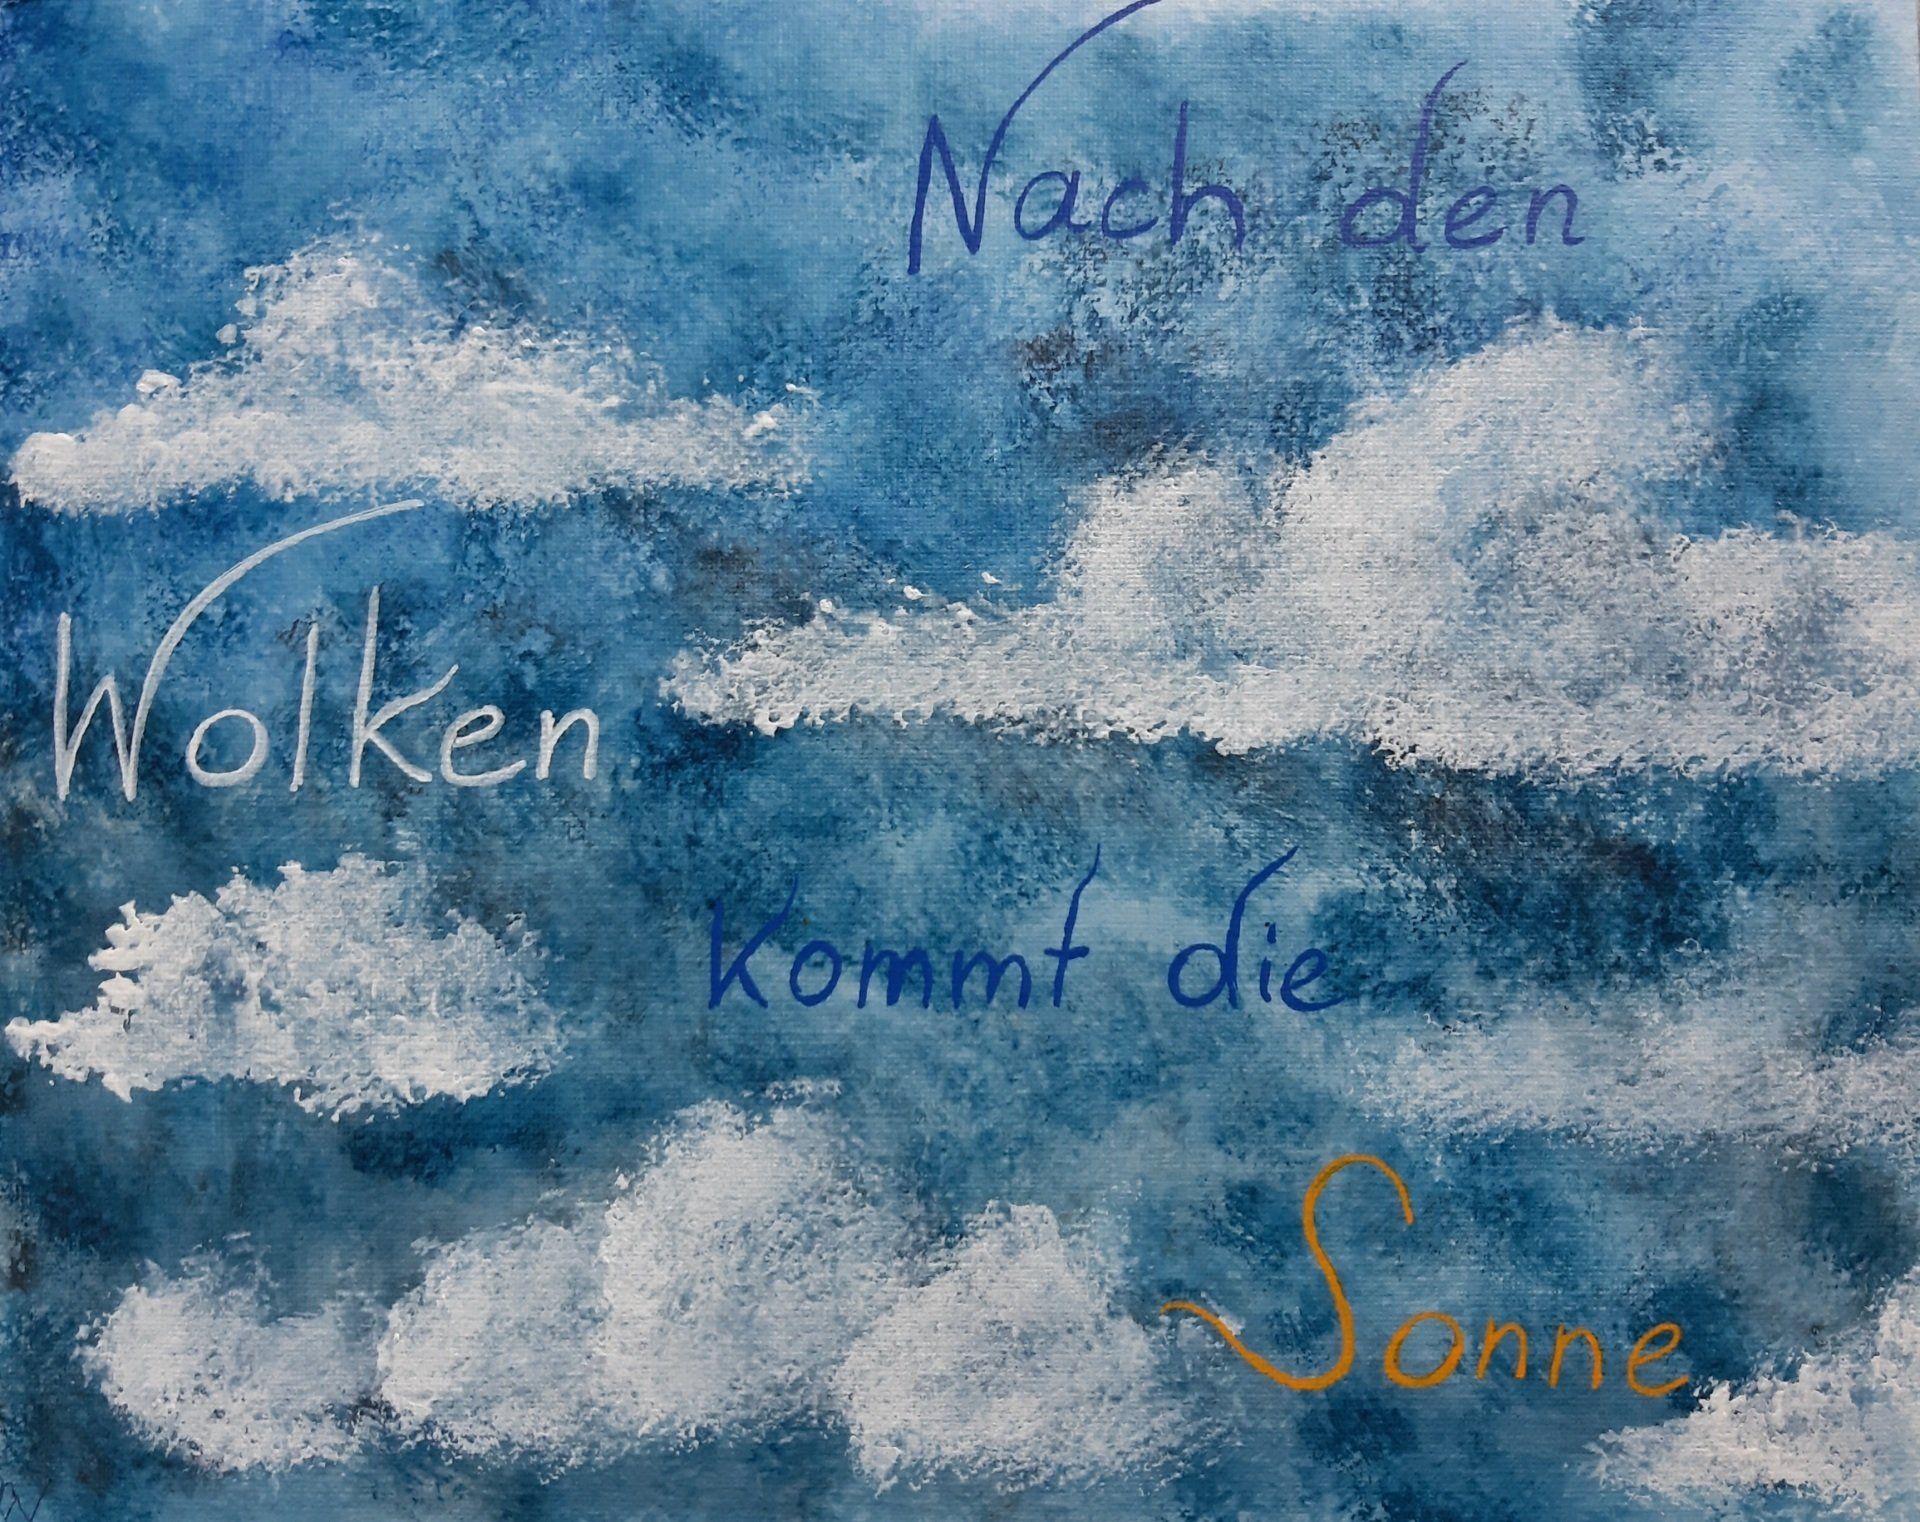 Nach den
Wolken
kommt die
Sonne